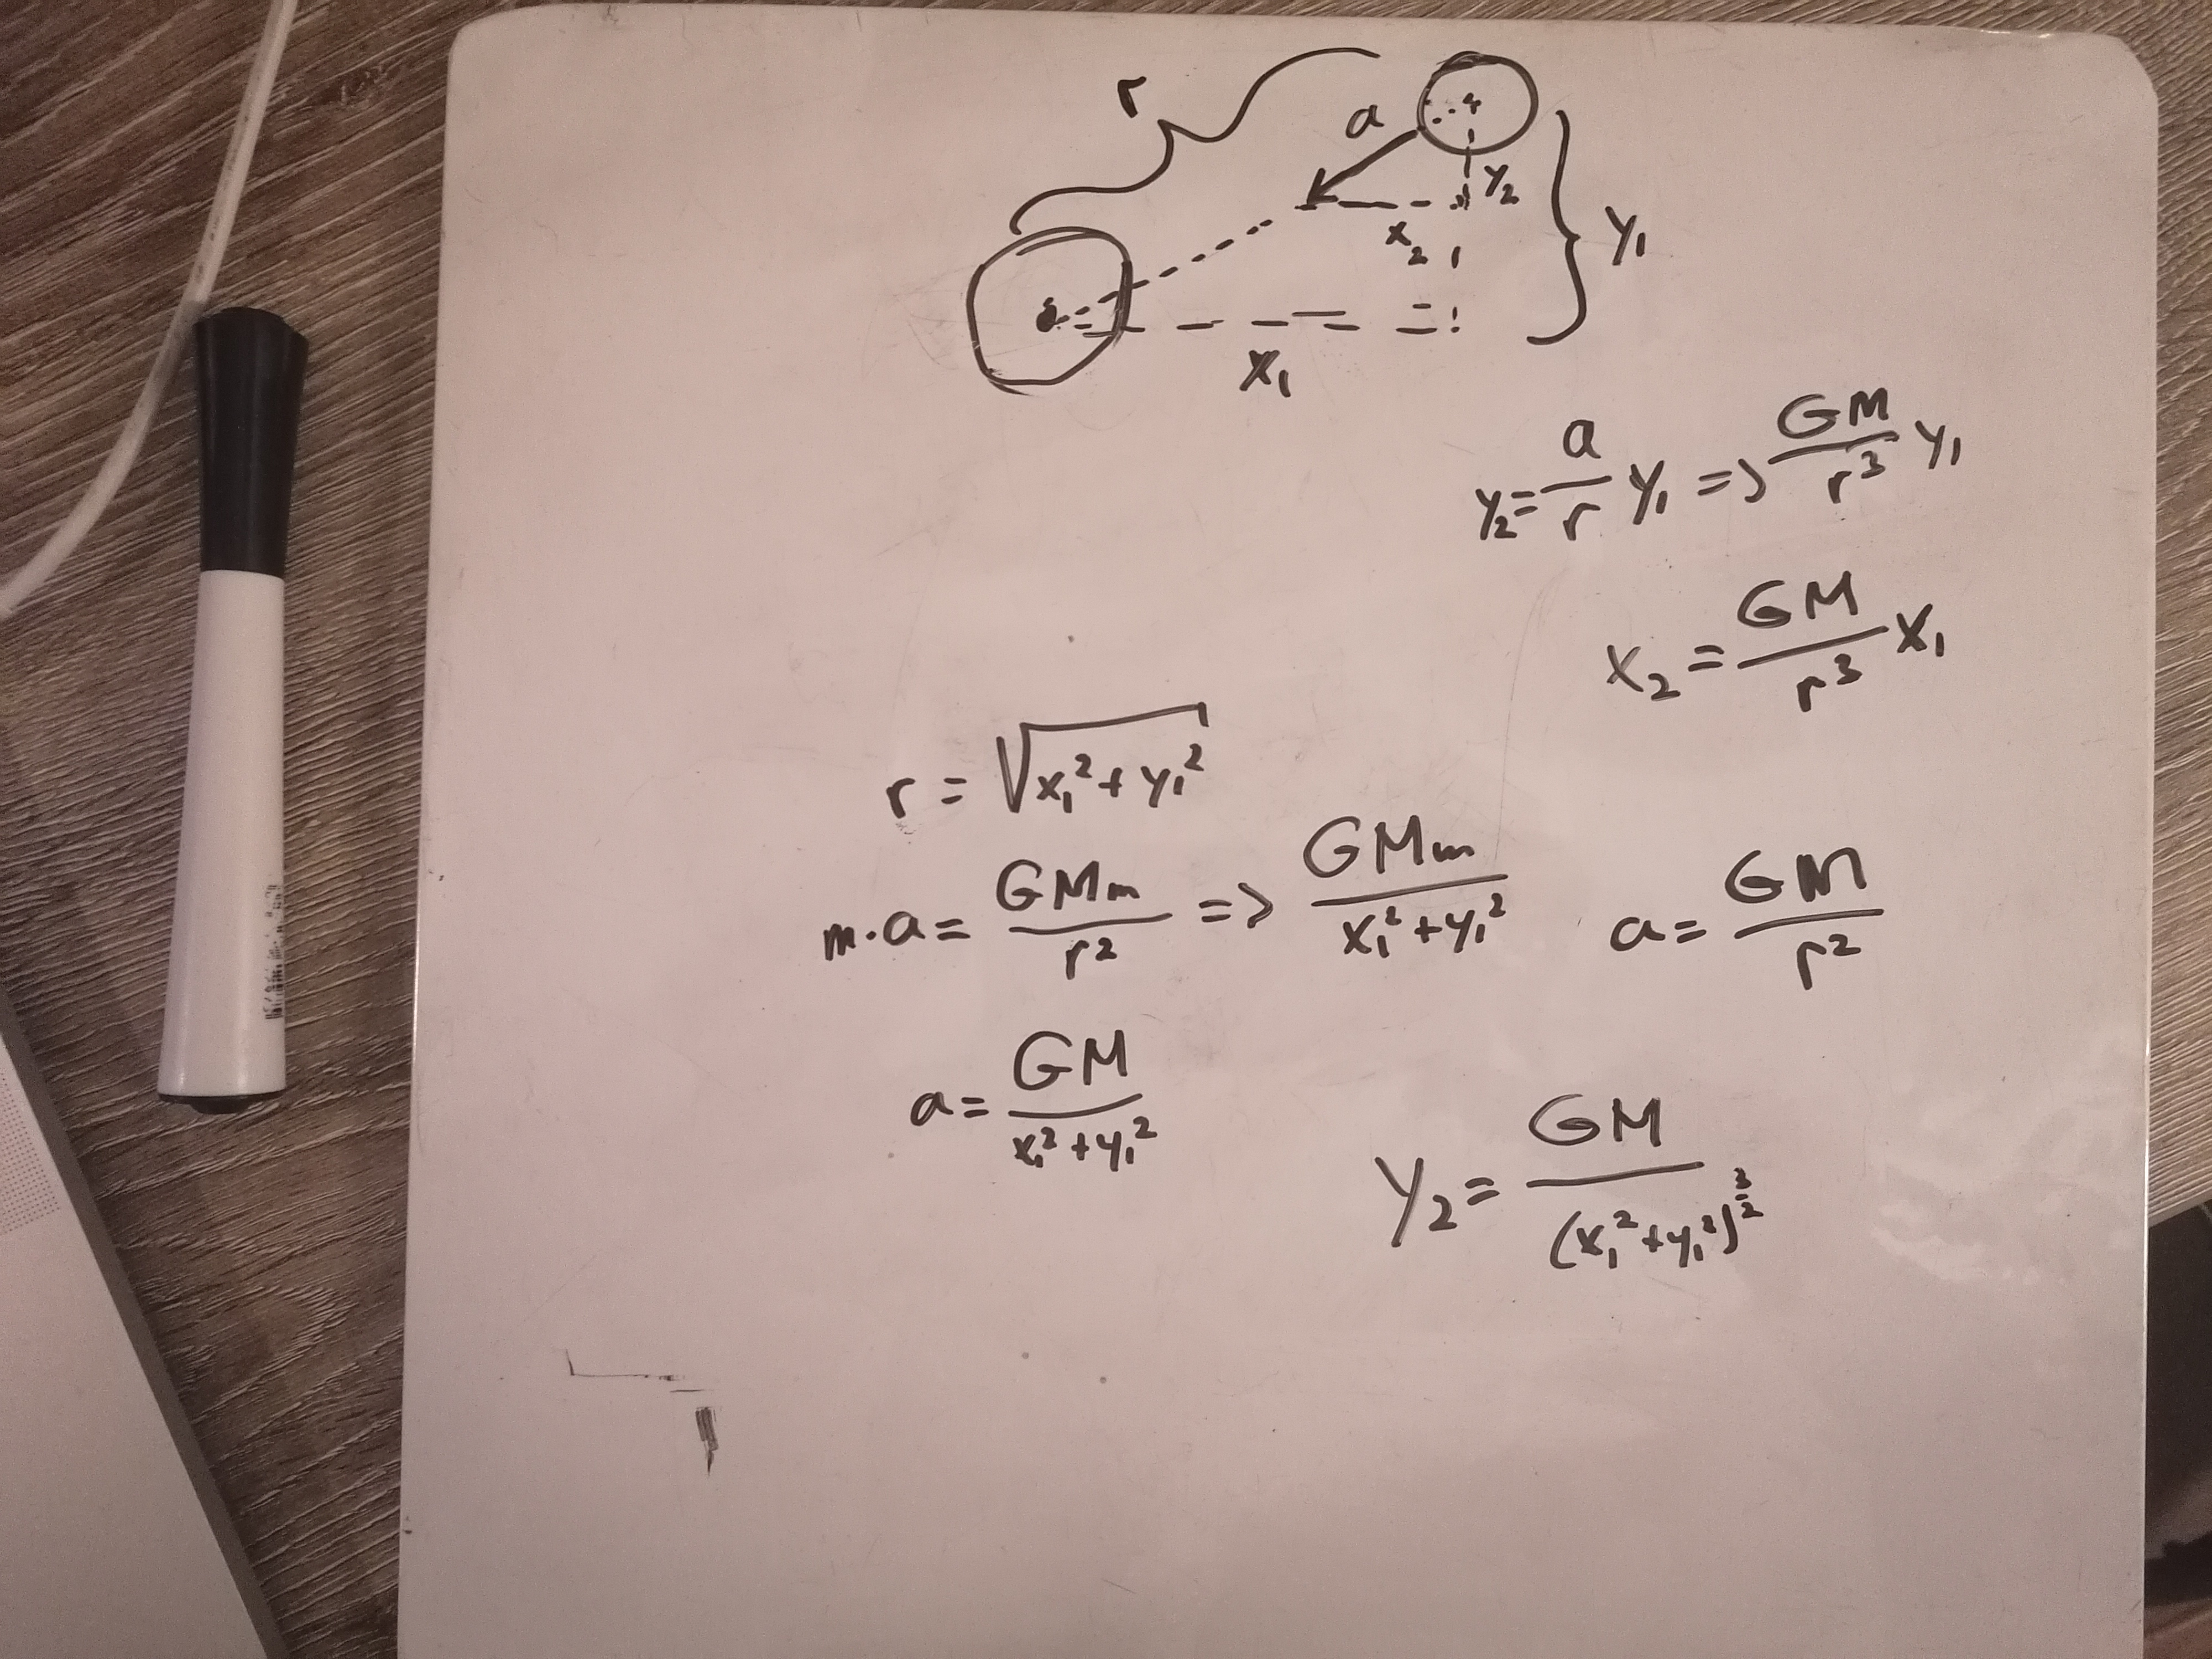 r
a
y₂
x₂
y₁
x₁
y₂ = a/r y₁ => GM/r³ y₁
x₂ = GM/r³ x₁
r = √(x₁² + y₁²)
m·a = GMm/r² => GMm/(x₁² + y₁²)
a = GM/r²
a = GM/(x₁² + y₁²)
y₂ = GM/(x₁² + y₁²)^(3/2)